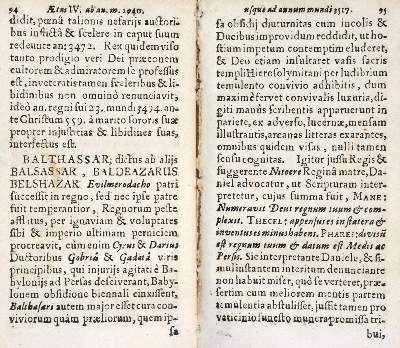 94 Ætas IV. ab an. m. 2940.
didit, pœnâ talionis nefarijs auctori-
bus inflictâ & scelere in caput suum
redeunte an: 3472. Rex quidem viso
tanto prodigio veri Dei præconem
cultorem & admiratorem se professus
est, inveteris tamen sceleribus & li-
bidinibus non omninò renunciavit,
ideò an. regni sui 23. mundi 3494. an-
te Christum 559. à marito sororis suæ
propter injustitias & libidines suas,
interfectus est.
BALTHASSAR; dictus ab alijs
BALSASSAR, BALDEAZARUS
BELSHAZAR Evilmerodacho patri
successit in regno, sed nec ipse patre
fuit temperantior, Regnorum peste
afflitus, per ignaviam & voluptates
sibi & imperio ultimam perniciem
procreavit, cùm enim Cyrus & Darius
Ductoribus Gobriâ & Gadatâ viris
principibus, qui injurijs agitati è Ba-
bylonijs ad Persas desciverant, Baby-
lonem obsidione biennali cinxissent,
Balthasari autem major esset cura con-
viviorum quàm præliorum, quem ip-
sa
usque ad annum mundi 3517. 95
sa obsidij diuturnitas cum incolis &
Ducibus improvidum reddidit, ut ho-
stium impetum contemptim eluderet,
& Deo etiam insultaret vasis sacris
templi Hierosolymitani per ludibrium
temulento convivio adhibitis, dum
maximè fervet convivalis luxuria, di-
giti manûs scribentis apparuerunt in
pariete, ex adverso, lucernæ, mensam
illustrantis, arcanas litteras exarantes,
omnibus quidem visas, nulli tamen
sensu cognitas. Igitur jussu Regis &
suggerente Nitocre Reginâ matre, Da-
niel advocatur, ut Scripturam inter-
pretetur, cujus summa fuit, MANE:
Numeravit Deus regnum suum & com-
plexit. THECEL: appensus es in statera &
inventus es minus habens. PHARE: divisũ
est regnum suum & datum est Medis ac
Persis. Sic interpretante Daniele, & si-
mul instantem interitum denunciante
non habuit miser, quò se verteret, præ-
sertim cum meliorem mentis partem
temulentia abstulisset, jussit tamen pro
vaticinio funesto munera promissa tri-
bui,